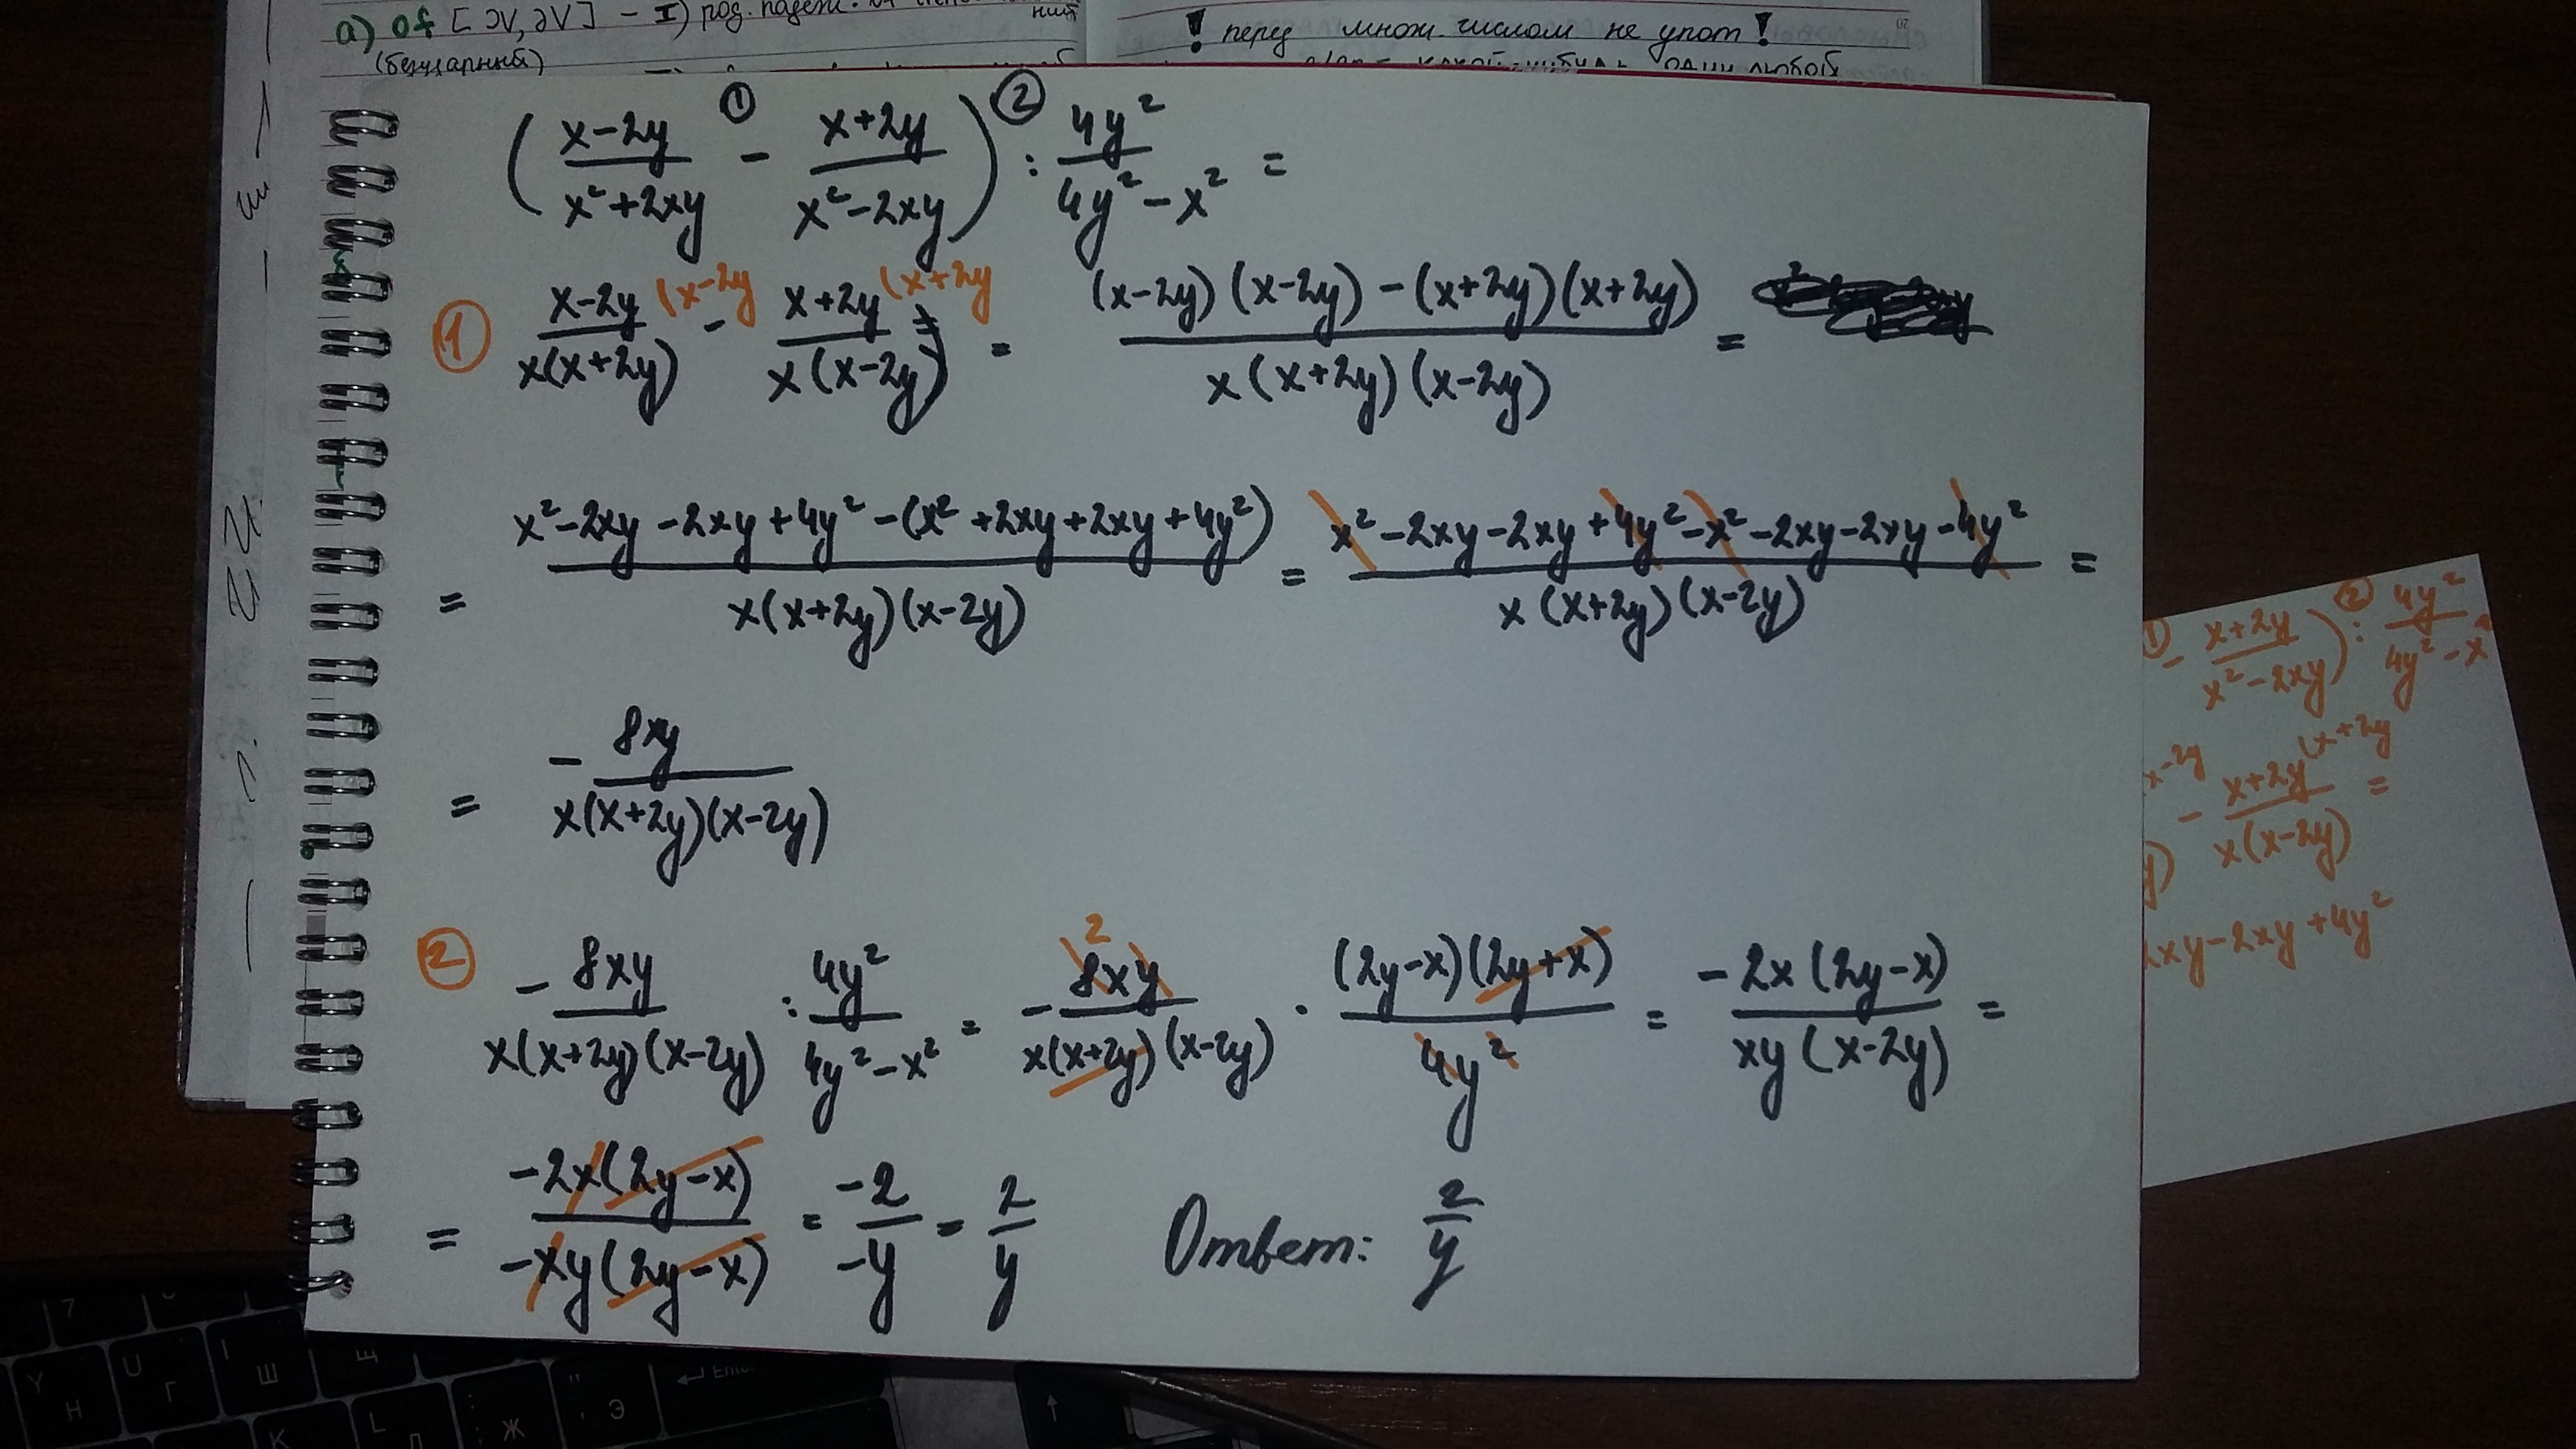 а) Of [ЭV, ЭV] - I) род. падеж.
(безударный)
ний
! перед множ. числом не упот!
какой-нибудь один любой
(x-2y / x²+2xy ① - x+2y / x²-2xy) ② : 4y² / 4y²-x² =
① x-2y / x(x+2y) (x-2y - x+2y / x(x-2y) (x+2y = (x-2y)(x-2y)-(x+2y)(x+2y) / x(x+2y)(x-2y) =
= x²-2xy-2xy+4y²-(x²+2xy+2xy+4y²) / x(x+2y)(x-2y) = x²-2xy-2xy+4y²-x²-2xy-2xy-4y² / x(x+2y)(x-2y) =
= - 8xy / x(x+2y)(x-2y)
② - 8xy / x(x+2y)(x-2y) : 4y² / 4y²-x² = - 8xy 2 / x(x+2y)(x-2y) · (2y-x)(2y+x) / 4y² = -2x(2y-x) / xy(x-2y) =
= -2x(2y-x) / -xy(2y-x) = -2 / -y = 2 / y Ответ: 2 / y
① - x+2y / x²-2xy) ② : 4y² / 4y²-x²
x-2y - x+2y / x(x-2y) (x+2y =
xy-2xy+4y²
7
Y Н
U Г
I Ш
Щ
Enter
K
L
Ж
" ' Э
↑